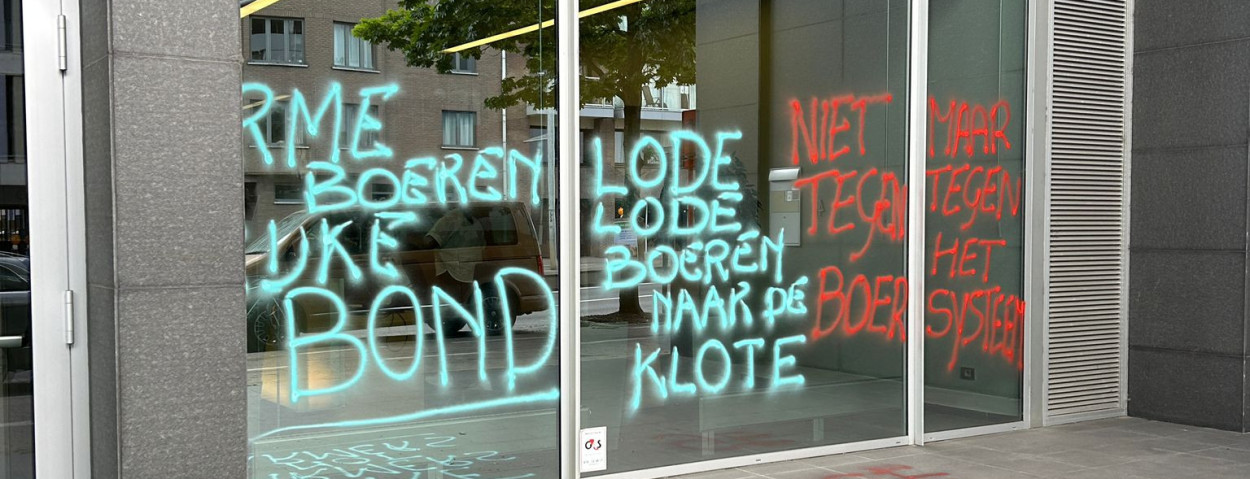 RME
BOEREN
IJKE
BOND
LODE
LODE
BOEREN
NAAR DE
KLOTE
NIET
TEGEN
BOER
MAAR
TEGEN
HET
SYSTEEM
G4S